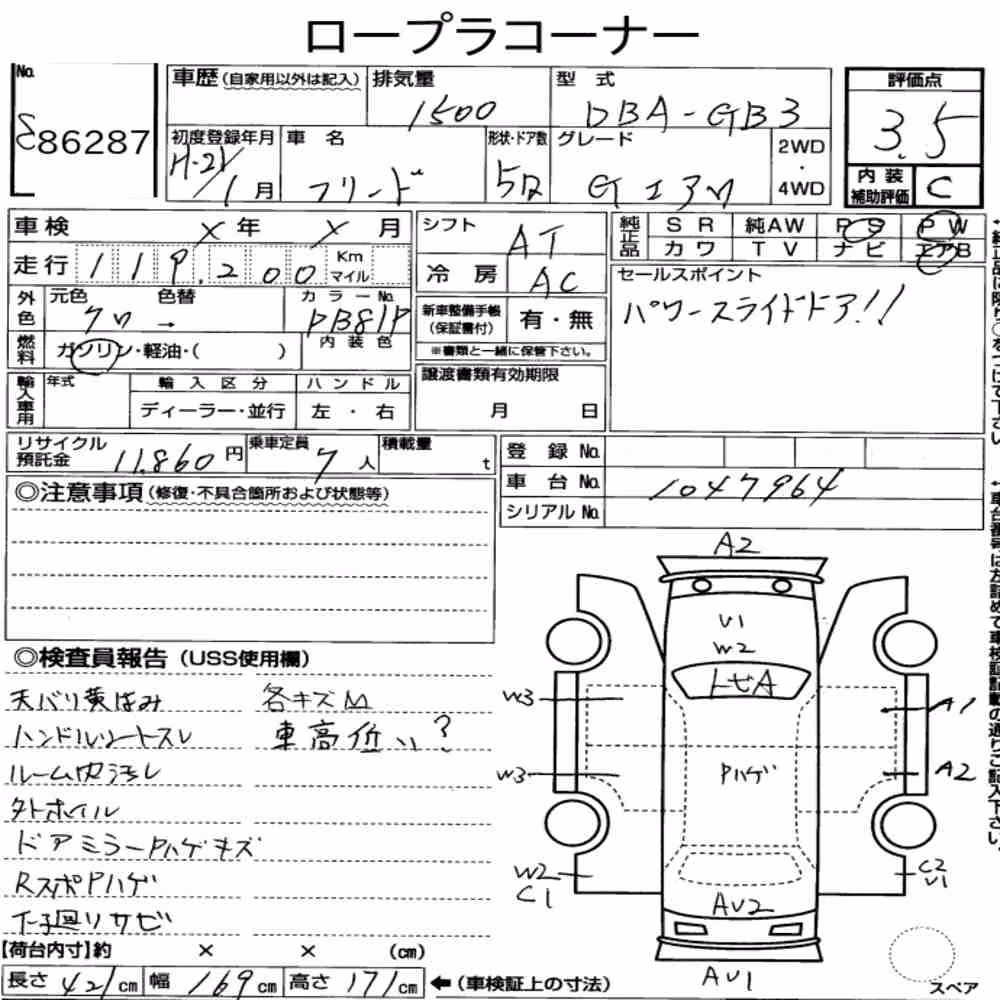 ロープラコーナー
No. 86287
車歴 (自家用以外は記入) 排気量 1500 型式 DBA-GB3
評価点 3.5
初度登録年月 H-21/1月 車名 フリード 形状・ドア数 5D グレード Gエアロ 2WD・4WD
内装補助評価 C
車検 X年 X月 シフト AT 純正品 SR 純AW PS PW
カワ TV ナビ エアB
走行 119,200 Km マイル 冷房 AC
セールスポイント
パワースライドドア!!
外色 元色 クロ 色替 → カラーNo. PB81P
新車整備手帳 (保証書付) 有・無
※書類と一緒に保管下さい。
燃料 ガソリン・軽油・( ) 内装色
輸入車用 年式 輸入区分 ハンドル
ディーラー・並行 左・右
譲渡書類有効期限
月 日
リサイクル預託金 11,860円 乗車定員 7人 積載量 t
登録No.
車台No. 1047964
シリアルNo.
◎注意事項 (修復・不具合箇所および状態等)
◎検査員報告 (USS使用欄)
天バリ黄ばみ 各キズM
車高低い?
ルーム内汚レ
外ホイル
ドアミラーPハゲキズ
RスポPハゲ
下廻リサビ
A2
V1
W2
トビA
W3
A1
W3
Pハゲ
A2
W2
C1
C2
V1
AV2
AV1
スペア
【荷台内寸】約 × × (cm)
長さ 421cm 幅 169cm 高さ 171cm ←(車検証上の寸法)
↑純正品に限り○をつけて下さい
↑車台番号は左詰めで車検証記載の通りご記入下さい。